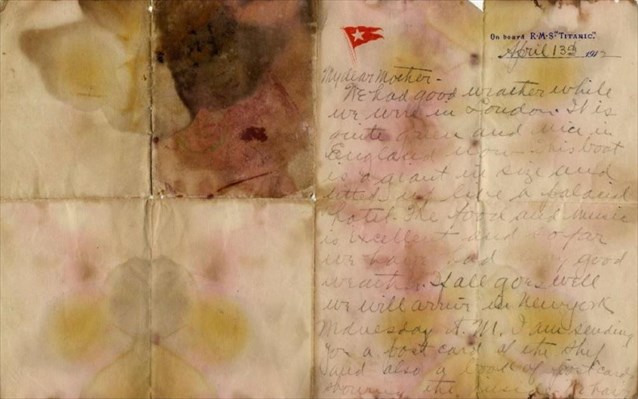 On board R·M·S "TITANIC".
April 13th 1912
My dear Mother -
We had good weather while
we were in London. It is
quite green and nice in
England now. This boat
is a giant in size and
fitted up like a palacial
hotel. The food and music
is excellent and so far
we have had very good
weather. If all goes well
we will arrive in New York
Wednesday A.M. I am sending
you a post card of the ship
and also a book of postcards
showing the inside